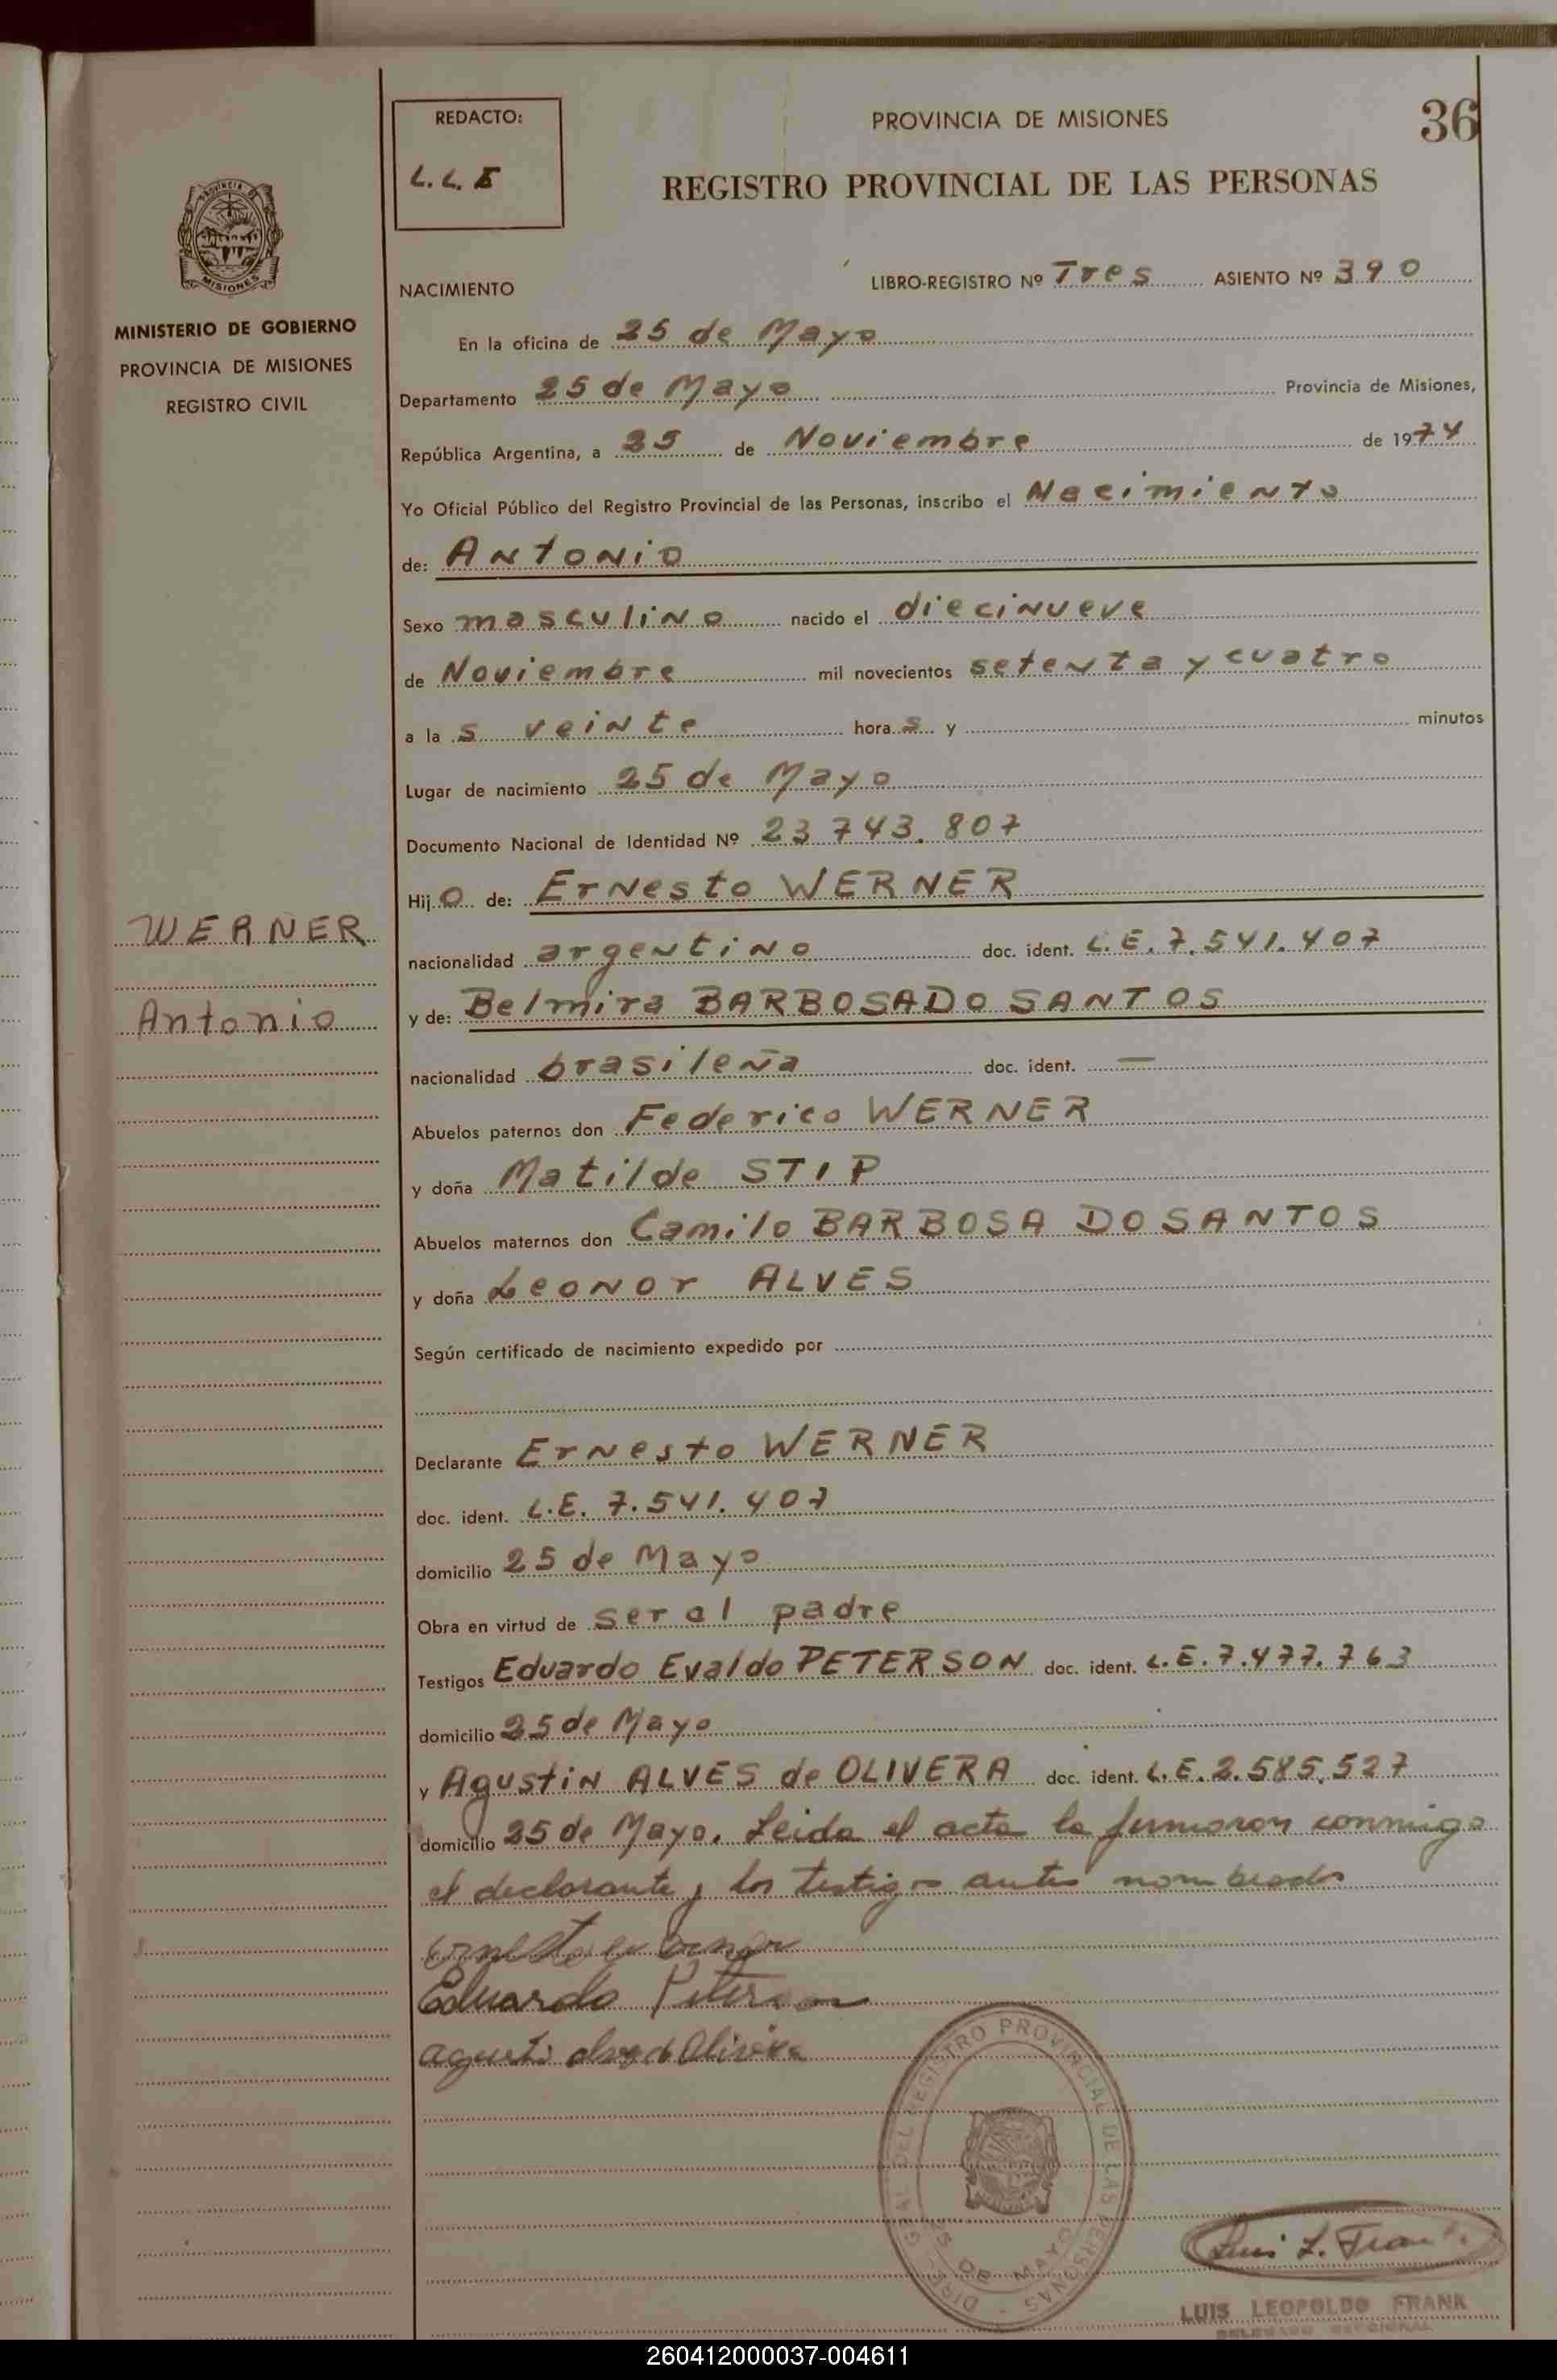 36
REDACTO:
L. L. F
PROVINCIA DE MISIONES
REGISTRO PROVINCIAL DE LAS PERSONAS
PROVINCIA DE
MISIONES
MINISTERIO DE GOBIERNO
PROVINCIA DE MISIONES
REGISTRO CIVIL
WERNER
Antonio
NACIMIENTO
LIBRO-REGISTRO Nº Tres ASIENTO Nº 390
En la oficina de 25 de Mayo
Departamento 25 de Mayo Provincia de Misiones,
República Argentina, a 25 de Noviembre de 1974
Yo Oficial Público del Registro Provincial de las Personas, inscribo el Nacimiento
de: ANtONiO
Sexo masculino nacido el diecinueve
de Noviembre mil novecientos setenta y cuatro
a la s veinte hora s y minutos
Lugar de nacimiento 25 de Mayo
Documento Nacional de Identidad Nº 23.743.807
Hij o de: Ernesto WERNER
nacionalidad argentino doc. ident. L.E. 7.541.407
y de: Belmira BARBOSA DO SANTOS
nacionalidad brasileña doc. ident. —
Abuelos paternos don Federico WERNER
y doña Matilde STIP
Abuelos maternos don Camilo BARBOSA DO SANTOS
y doña Leonor ALVES
Según certificado de nacimiento expedido por
Declarante Ernesto WERNER
doc. ident. L.E. 7.541.407
domicilio 25 de Mayo
Obra en virtud de ser el padre
Testigos Eduardo Evaldo PETERSON doc. ident. L.E. 7.477.763
domicilio 25 de Mayo
y Agustin ALVES de OLIVERA doc. ident. L.E. 2.585.527
domicilio 25 de Mayo. Leida el acta la firmaron conmigo
el declarante y los testigos antes nombrados
Ernesto Werner
Eduardo Peterson
agusti alves de Olivera
DIREC. GRAL. DEL REGISTRO PROVINCIAL DE LAS PERSONAS
25 DE MAYO
Luis L. Frank
LUIS LEOPOLDO FRANK
DELEGADO SECCIONAL
260412000037-004611